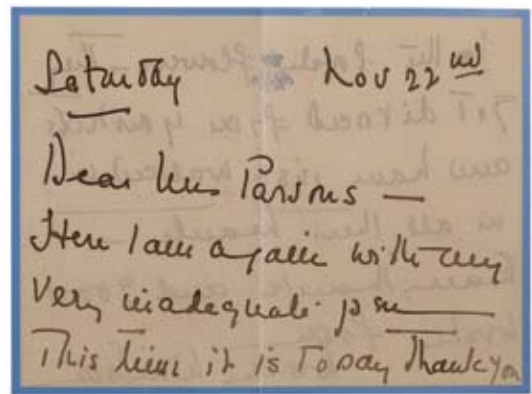 Saturday Nov 22nd
Dear Mrs Parsons —
Here I am again with my
very inadequate pen
This time it is to say thank you